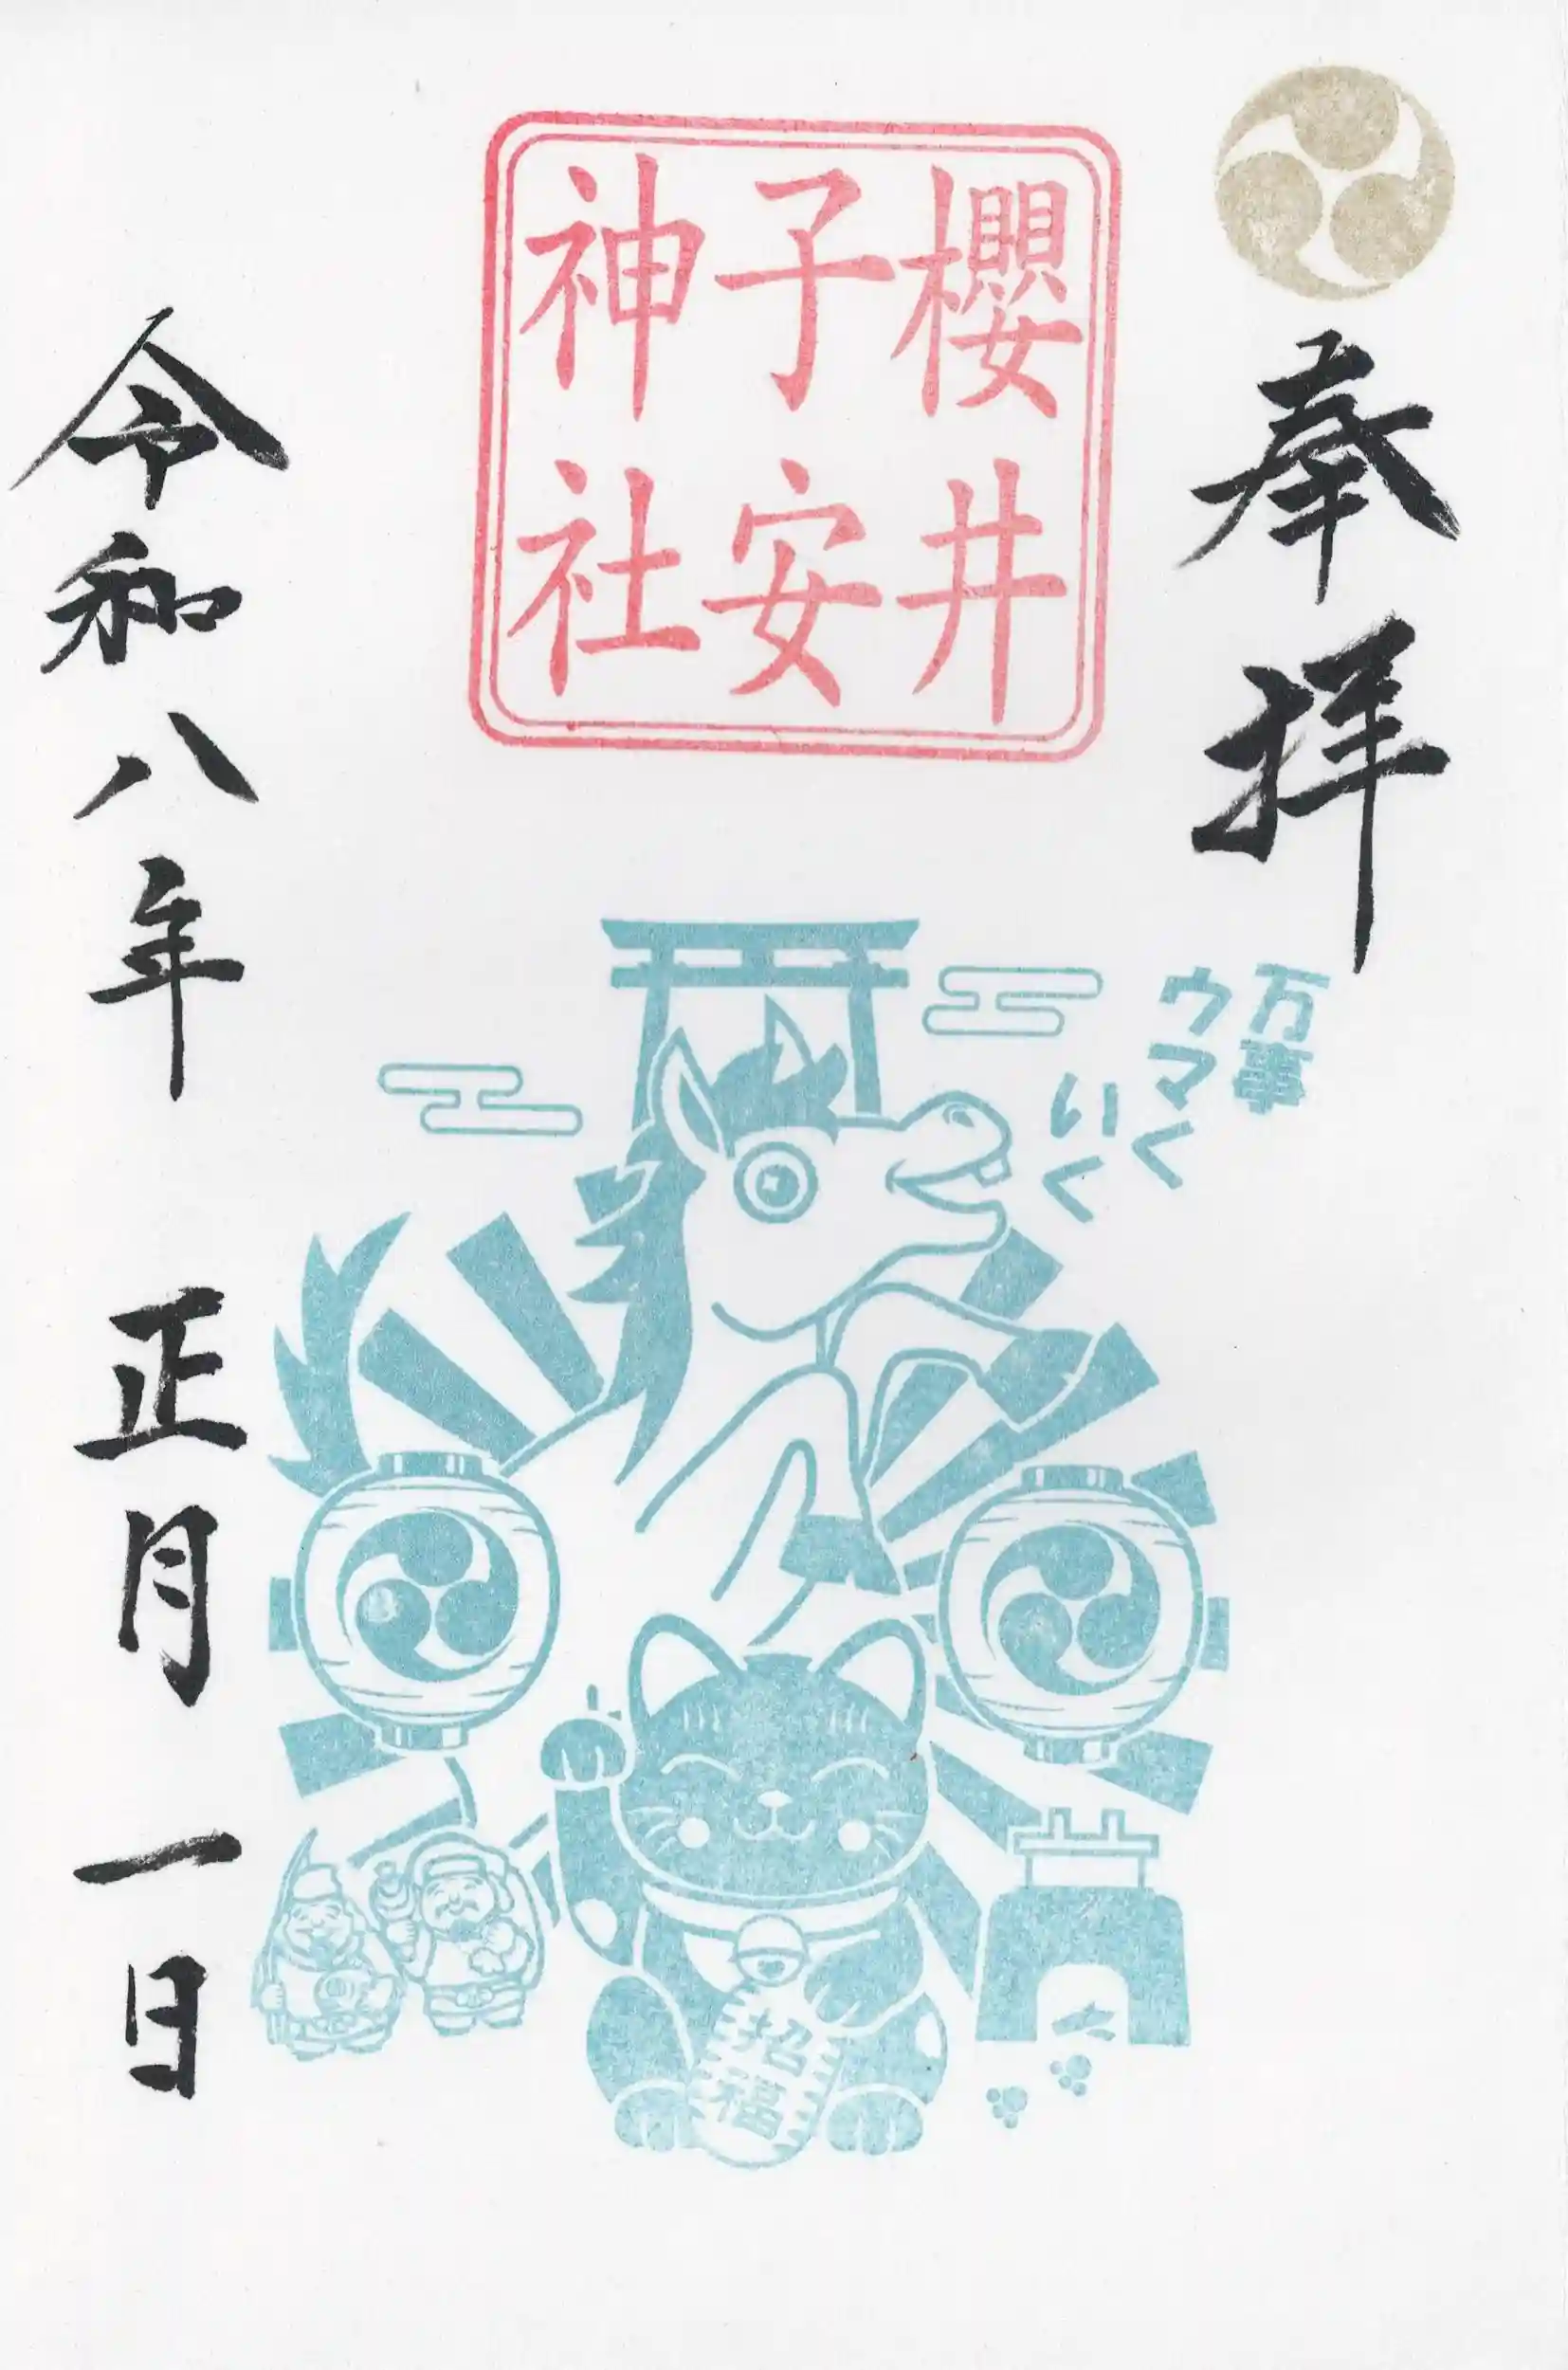 奉拝
櫻井
子安
神社
万事
ウマく
いく
招福
令和八年 正月一日